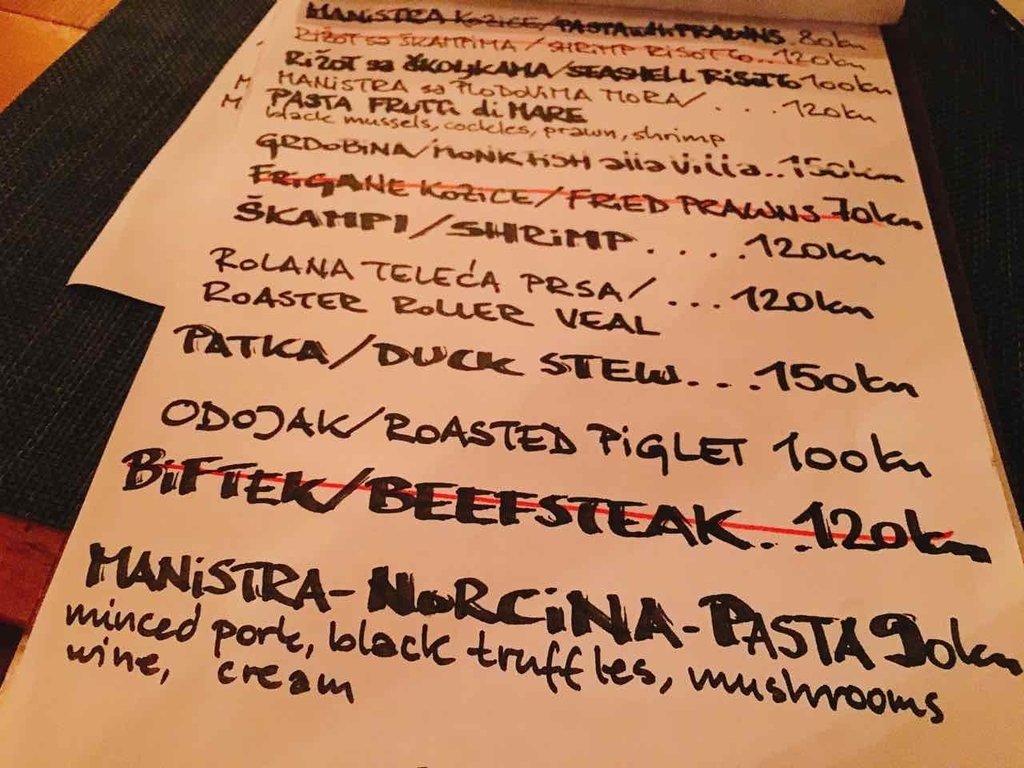 MANiSTRA KOZiCE/PASTA with PRAWNS 80kn
RiŽOT sa ŠKAMPIMA / SHRiMP RiSOTTO...120kn
RiŽOT sa ŠKOLJKAMA/SEASHELL RiSOTTO 100kn
M MANiSTRA sa PLODOViMA MORA/ . . . 120kn
M PASTA FRUTTi di MARE
black mussels, cockles, prawn, shrimp
GRDOBiNA/MONKFiSH alla Villa..150kn
FRiGANE KOZiCE/FRiED PRAWNS 70kn
ŠKAMPI/SHRiMP. . . . .120kn
ROLANA TELEĆA PRSA/ ...120kn
ROASTER ROLLER VEAL
PATKA/DUCK STEW...150kn
ODOJAK/ROASTED PiGLET 100kn
BiFTEK/BEEFSTEAK...120kn
MANiSTRA-NORCiNA-PASTA 90kn
minced pork, black truffles, mushrooms
wine, cream